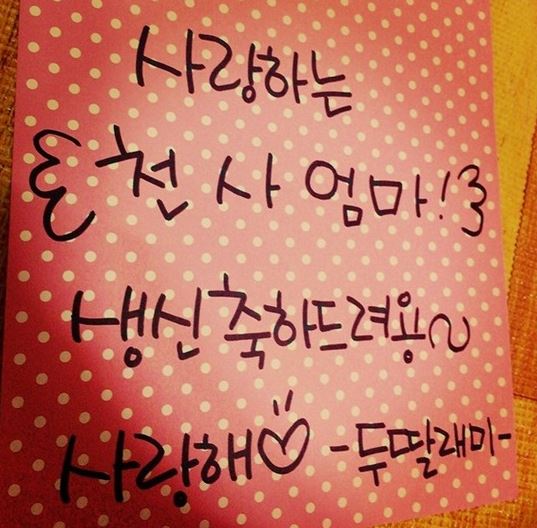 사랑하는
천사 엄마!
생신축하드려용~
사랑해♡ -두딸래미-